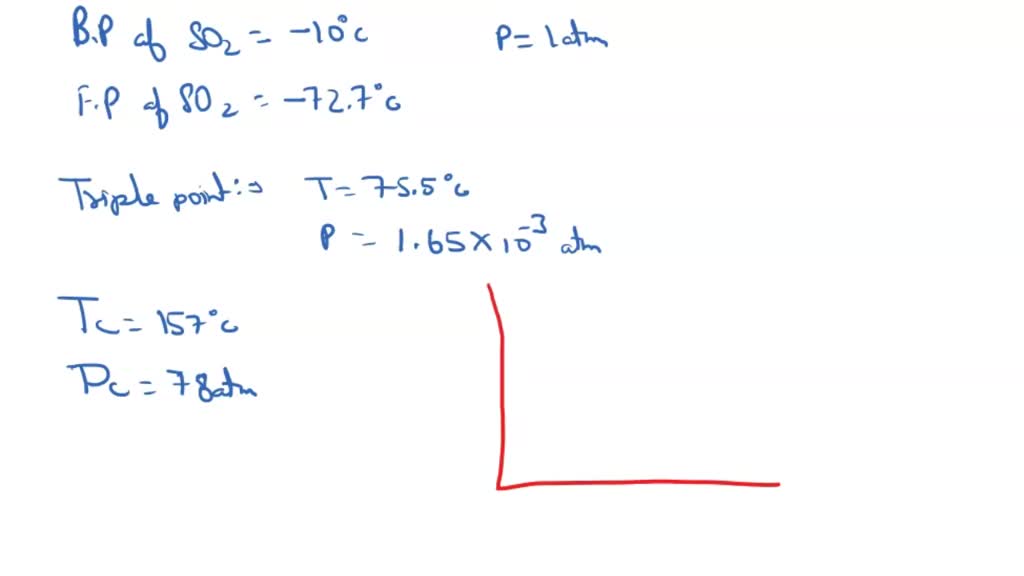 B.P of SO₂ = -10°C P = 1 atm
F.P of SO₂ = -72.7°C
Triple point :⇒ T = 75.5°C
P = 1.65 × 10⁻³ atm
Tc = 157°C
Pc = 78 atm